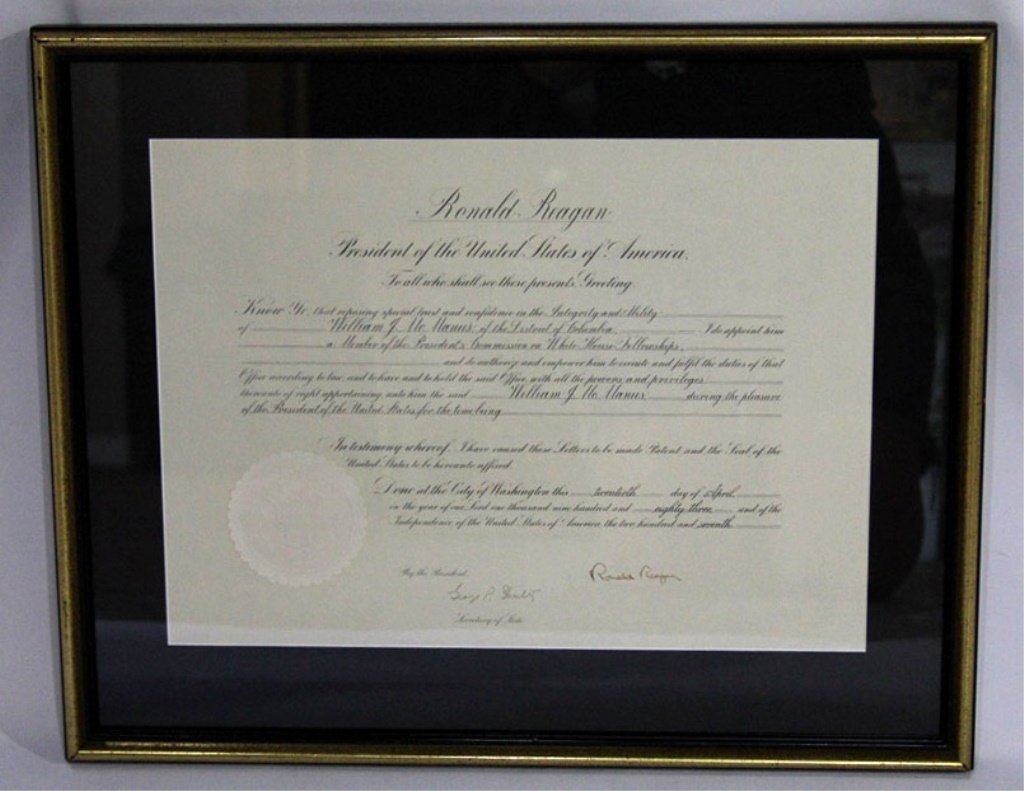 Ronald Reagan
President of the United States of America.
To all who shall see these presents, Greeting:
Know Ye, that reposing special trust and confidence in the Integrity and Ability
of William J. Mc Manus, of the District of Columbia, I do appoint him
a Member of the President's Commission on White House Fellowships,
and do authorize and empower him to execute and fulfil the duties of that
Office according to law, and to have and to hold the said Office, with all the powers, and privileges
thereunto of right appertaining unto him the said William J. Mc Manus, during the pleasure
of the President of the United States for the time being
In testimony whereof, I have caused these Letters to be made Patent and the Seal of the
United States to be hereunto affixed.
Done at the City of Washington this twentieth day of April
in the year of our Lord one thousand nine hundred and eighty-three and of the
Independence of the United States of America the two hundred and seventh.
By the President:
Ronald Reagan
George P. Shultz
Secretary of State